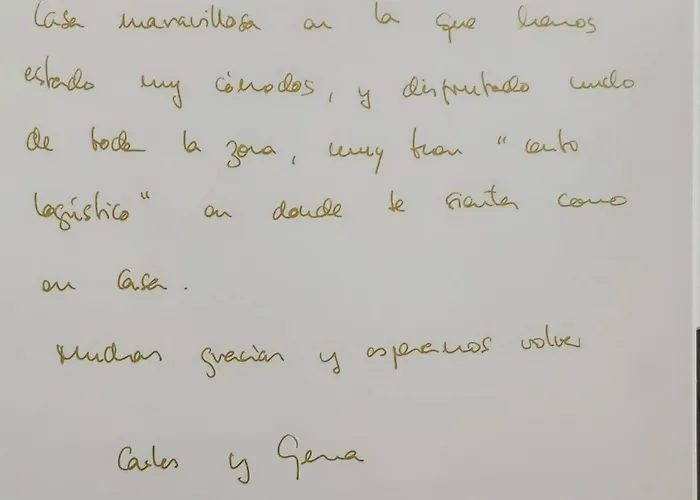 Casa maravillosa en la que hemos
estado muy cómodos, y disfrutado mucho
de toda la zona, muy buen "centro
logístico" en donde te sientes como
en casa.
Muchas gracias y esperamos volver
Carlos y Gema